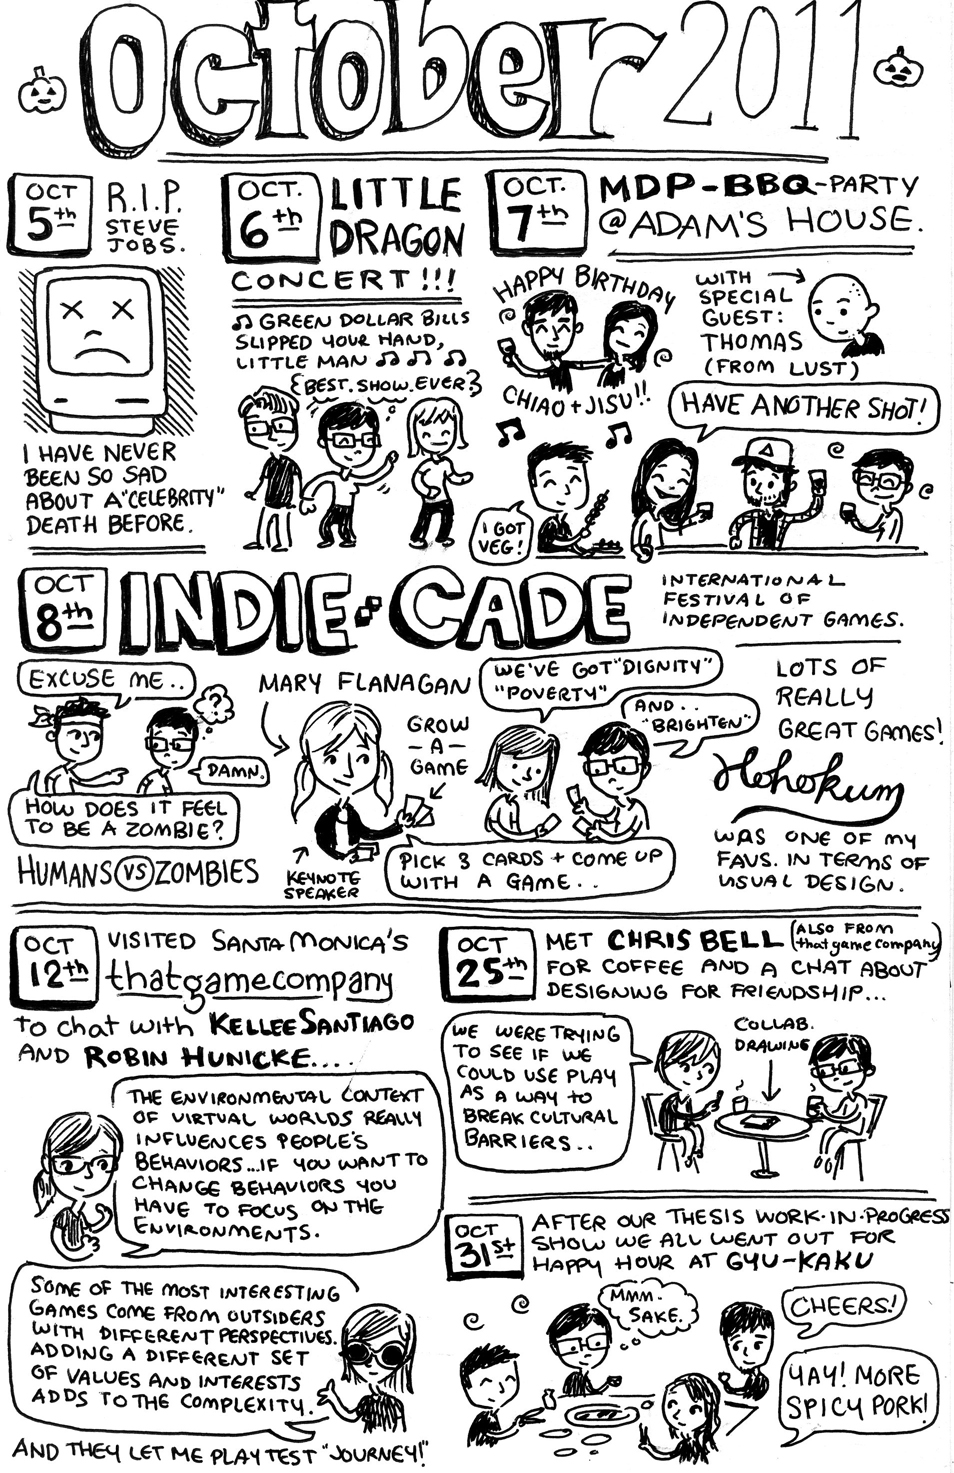 October 2011
OCT
5th
R.I.P.
STEVE
JOBS.
I HAVE NEVER
BEEN SO SAD
ABOUT A "CELEBRITY"
DEATH BEFORE.
OCT.
6th
LITTLE
DRAGON
CONCERT!!!
♫ GREEN DOLLAR BILLS
SLIPPED YOUR HAND,
LITTLE MAN ♫ ♫ ♫
BEST. SHOW. EVER?
OCT.
7th
MDP-BBQ-PARTY
@ADAM'S HOUSE.
HAPPY BIRTHDAY
CHIAO + JISU!!
WITH
SPECIAL
GUEST:
THOMAS
(FROM LUST)
HAVE ANOTHER SHOT!
I GOT
VEG!
OCT
8th
INDIE-CADE
INTERNATIONAL
FESTIVAL OF
INDEPENDENT GAMES.
EXCUSE ME..
?
DAMN.
HOW DOES IT FEEL
TO BE A ZOMBIE?
HUMANS VS ZOMBIES
MARY FLANAGAN
GROW
-A-
GAME
KEYNOTE
SPEAKER
WE'VE GOT "DIGNITY"
"POVERTY"
AND..
"BRIGHTEN"
PICK 3 CARDS + COME UP
WITH A GAME..
LOTS OF
REALLY
GREAT GAMES!
Hohokum
WAS ONE OF MY
FAVS. IN TERMS OF
VISUAL DESIGN.
OCT
12th
VISITED SANTA MONICA'S
thatgamecompany
to chat with KELLEE SANTIAGO
AND ROBIN HUNICKE....
THE ENVIRONMENTAL CONTEXT
OF VIRTUAL WORLDS REALLY
INFLUENCES PEOPLE'S
BEHAVIORS...IF YOU WANT TO
CHANGE BEHAVIORS YOU
HAVE TO FOCUS ON THE
ENVIRONMENTS.
SOME OF THE MOST INTERESTING
GAMES COME FROM OUTSIDERS
WITH DIFFERENT PERSPECTIVES.
ADDING A DIFFERENT SET
OF VALUES AND INTERESTS
ADDS TO THE COMPLEXITY.
AND THEY LET ME PLAYTEST "JOURNEY!"
OCT
25th
MET CHRIS BELL (ALSO FROM
thatgamecompany)
FOR COFFEE AND A CHAT ABOUT
DESIGNING FOR FRIENDSHIP...
WE WERE TRYING
TO SEE IF WE
COULD USE PLAY
AS A WAY TO
BREAK CULTURAL
BARRIERS..
COLLAB.
DRAWING
OCT
31st
AFTER OUR THESIS WORK-IN-PROGRESS
SHOW WE ALL WENT OUT FOR
HAPPY HOUR AT GYU-KAKU
MMM.
SAKE.
CHEERS!
YAY! MORE
SPICY PORK!